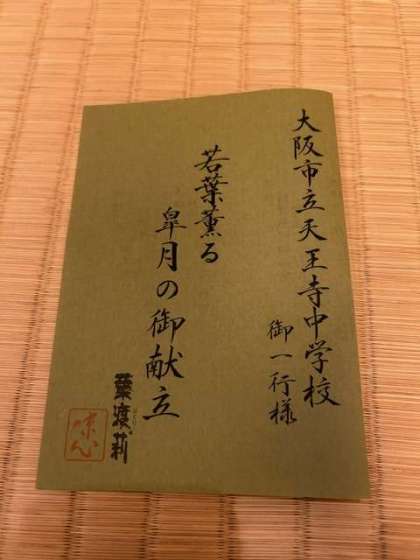 大阪市立天王寺中学校
御一行様
若葉薫る
皐月の御献立
葉渡莉
味心